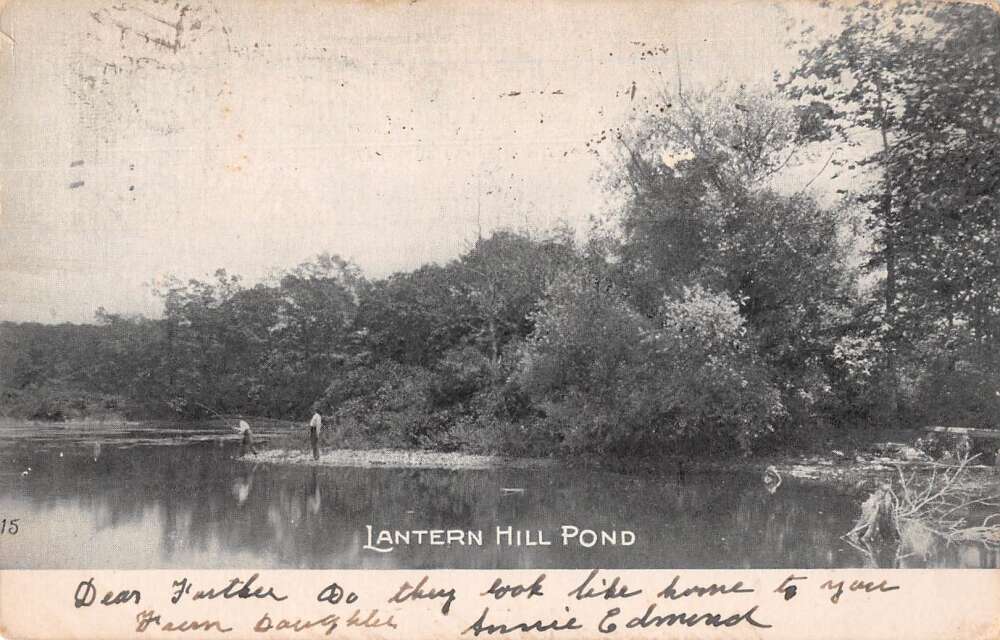 15
LANTERN HILL POND
Dear Farther Do they look like home to you
From Daughter Annie Edmond